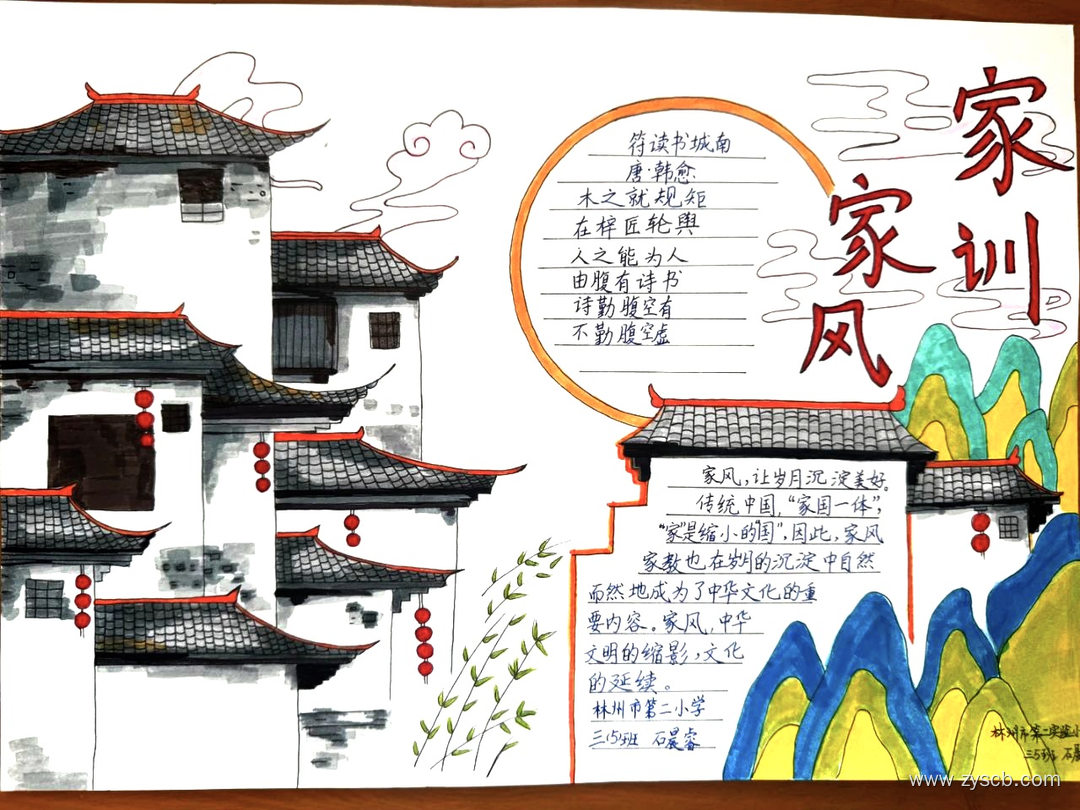 家训
家风
符读书城南
唐·韩愈
木之就规矩
在梓匠轮舆
人之能为人
由腹有诗书
诗勤腹空有
不勤腹空虚
家风,让岁月沉淀美好。
传统中国,“家国一体”,
“家”是缩小的“国”,因此,家风
家教也在岁月的沉淀中自然
而然地成为了中华文化的重
要内容。家风,中华
文明的缩影,文化
的延续。
林州市第二小学
三(5)班 石晨睿
林州市第二实验小
三5班 石晨
www.zyscb.com